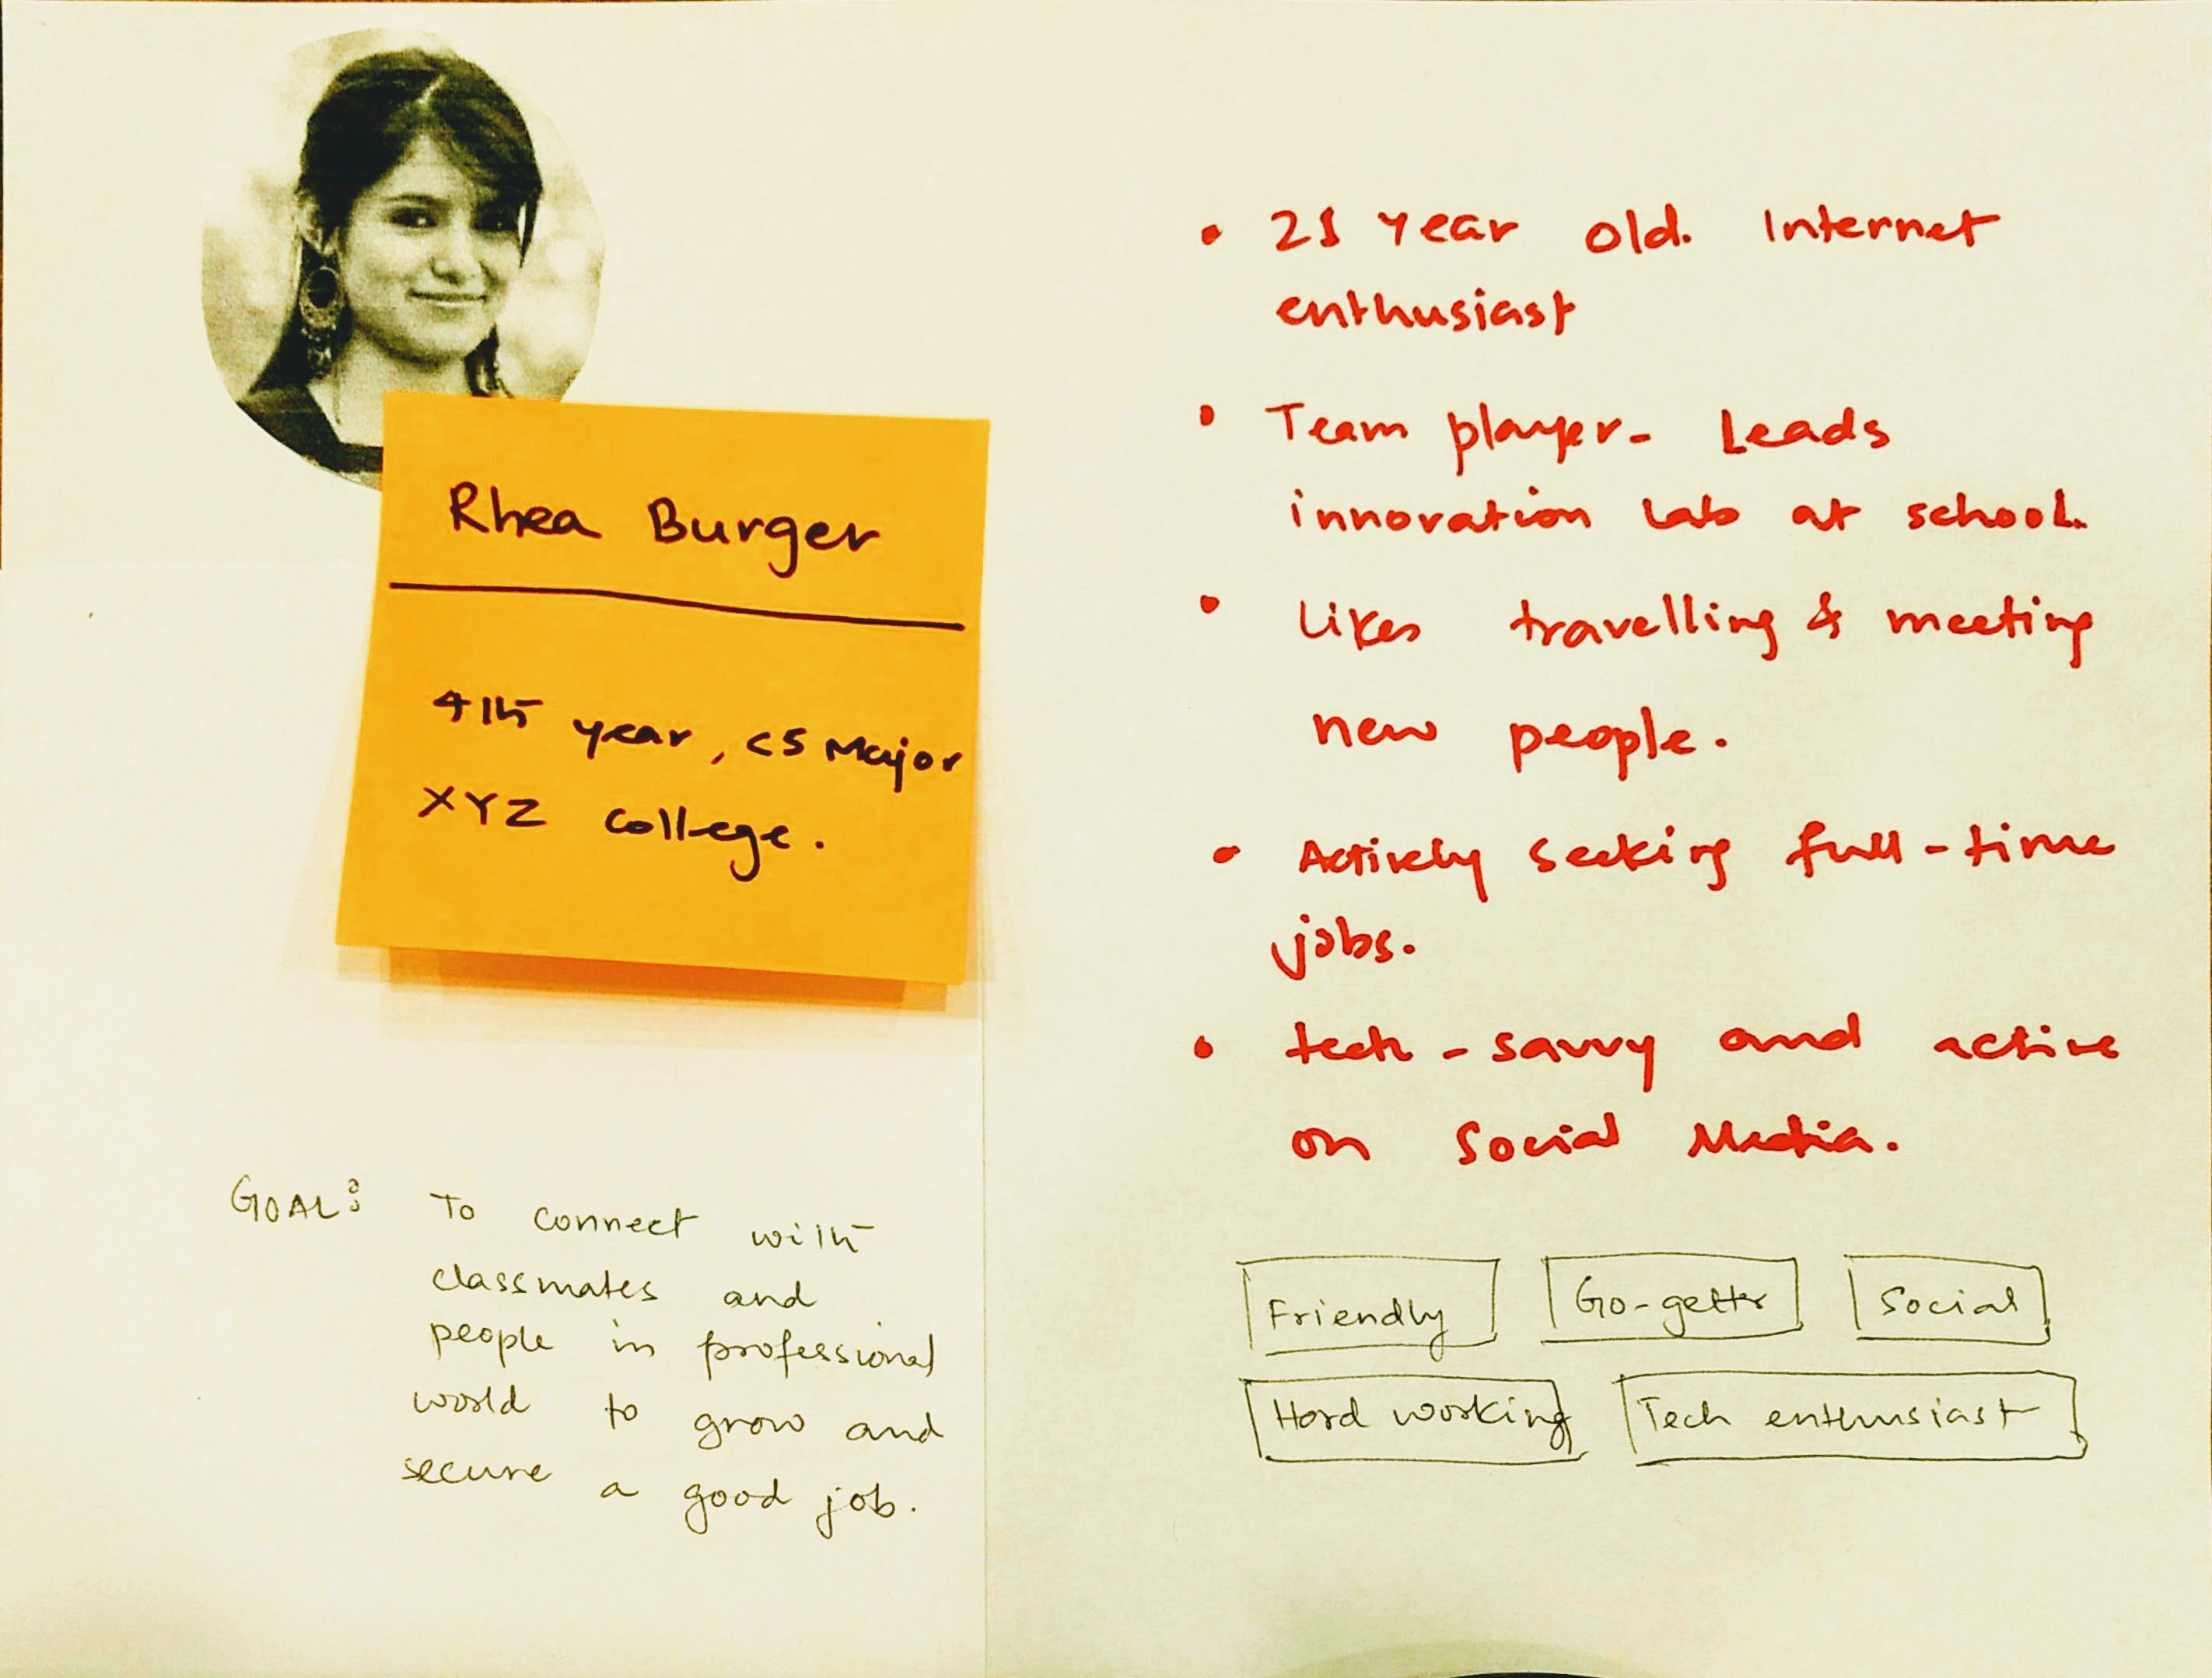 Rhea Burger
4th year, CS Major
XYZ college.
GOAL: To connect with
classmates and
people in professional
world to grow and
secure a good job.
• 21 Year old. Internet
enthusiast
• Team player- Leads
innovation lab at school.
• Likes travelling & meeting
new people.
• Actively seeking full-time
jobs.
• tech-savvy and active
on Social Media.
Friendly Go-getter Social
Hard working Tech enthusiast